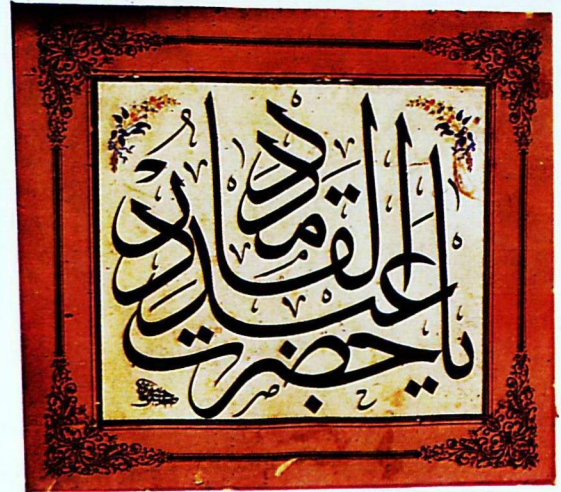 يا حضرت
عبد القادر
مدد